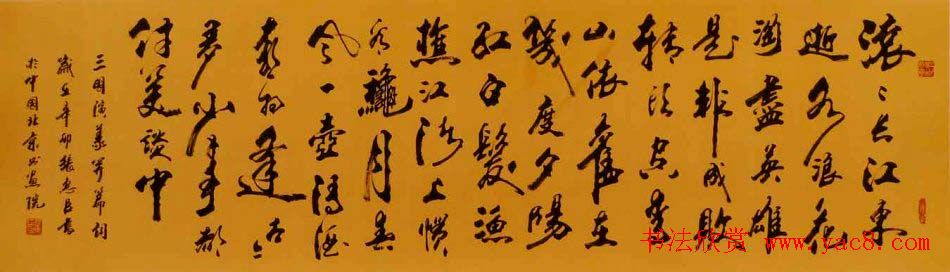 滚〻长江东
逝水浪花
淘盡英雄
是非成败
转头空青
山依舊在
幾度夕陽
红白髮渔
樵江渚上惯
看龝月春
风一壶浊酒
喜相逢古今
多少事都
付笑談中
三国演義开篇词
歲在辛卯张惠臣書
於中国北京书画院
书法欣赏 www.yac8.com